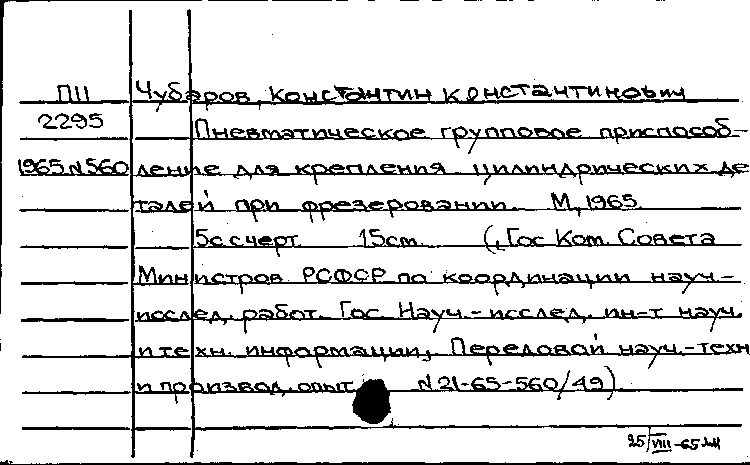 ПII Чубаров, Константин Константинович
2295 Пневматическое групповое приспособ-
1965 N560 ление для крепления цилиндрических де
талей при фрезеровании. М, 1965.
5с с черт. 15см. (, Гос Ком. Совета
Министров РСФСР по координации науч.-
исслед. работ. Гос. Науч.-исслед. ин-т науч.
и техн. информации, Передовой науч.-техн
и производ. опыт N 21-65-560/49).
25/VIII-65